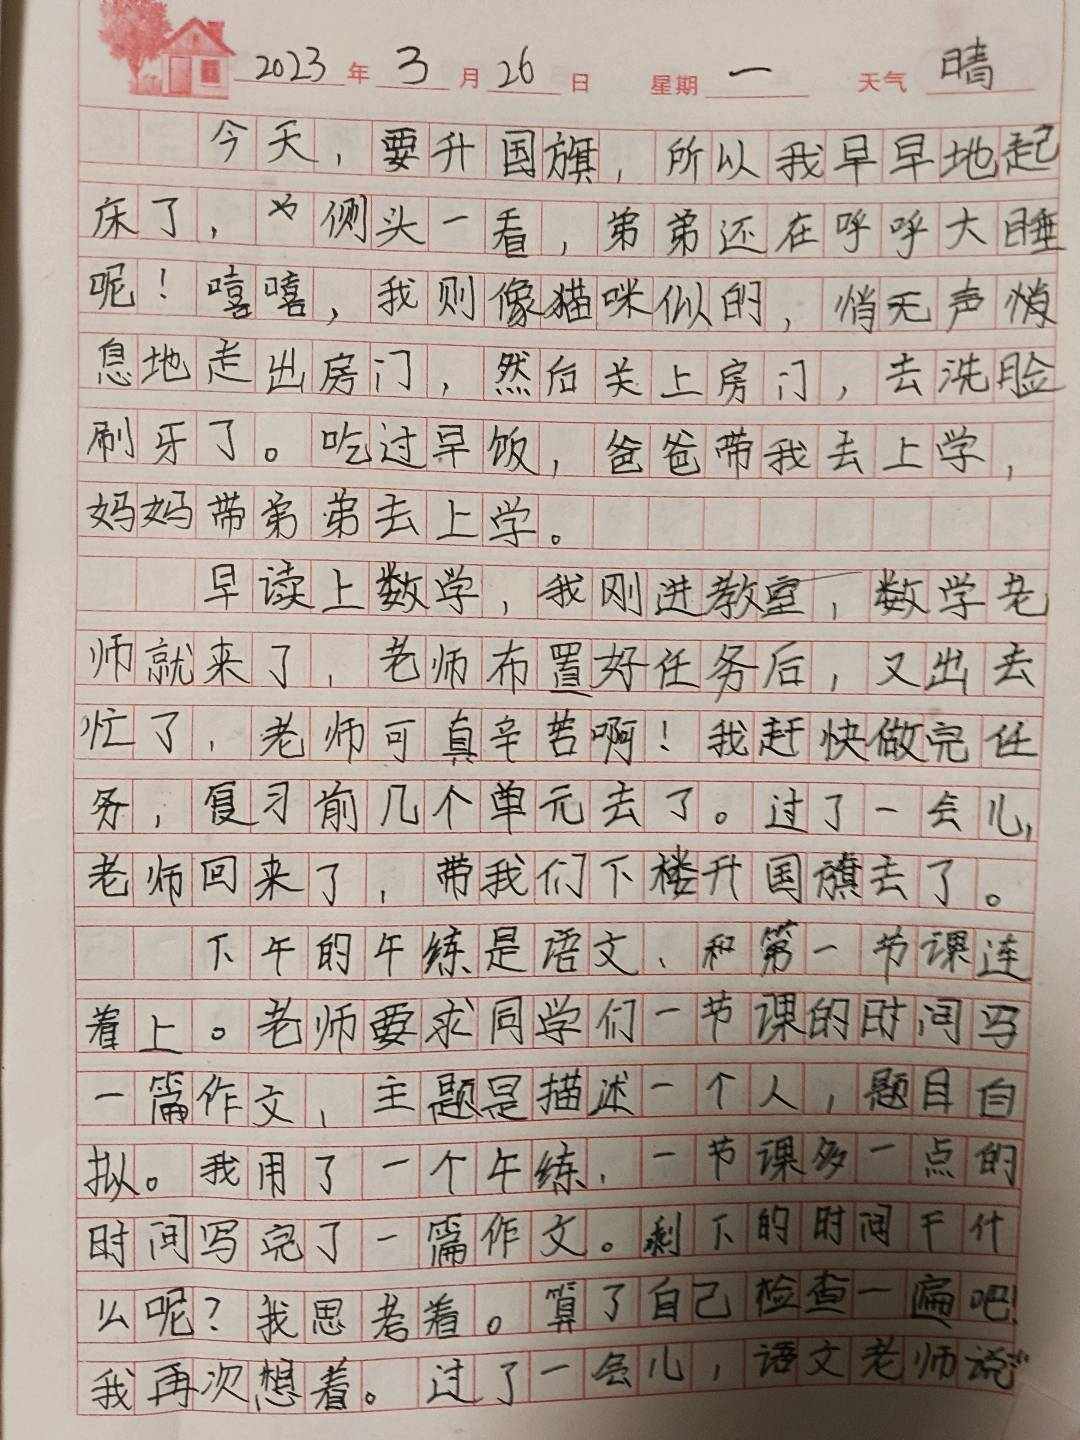 2023年3月26日 星期一 天气晴
今天,要升国旗,所以我早早地起
床了,侧头一看,弟弟还在呼呼大睡
呢!嘻嘻,我则像猫咪似的,悄无声悄
息地走出房门,然后关上房门,去洗脸
刷牙了。吃过早饭,爸爸带我去上学,
妈妈带弟弟去上学。
早读上数学,我刚进教室,数学老
师就来了,老师布置好任务后,又出去
忙了,老师可真辛苦啊!我赶快做完任
务,复习前几个单元去了。过了一会儿,
老师回来了,带我们下楼升国旗去了。
下午的午练是语文、和第一节课连
着上。老师要求同学们一节课的时间写
一篇作文,主题是描述一个人,题目自
拟。我用了一个午练,一节课多一点的
时间写完了一篇作文。剩下的时间干什
么呢?我思考着。算了自己检查一遍吧!
我再次想着。过了一会儿,语文老师说:“